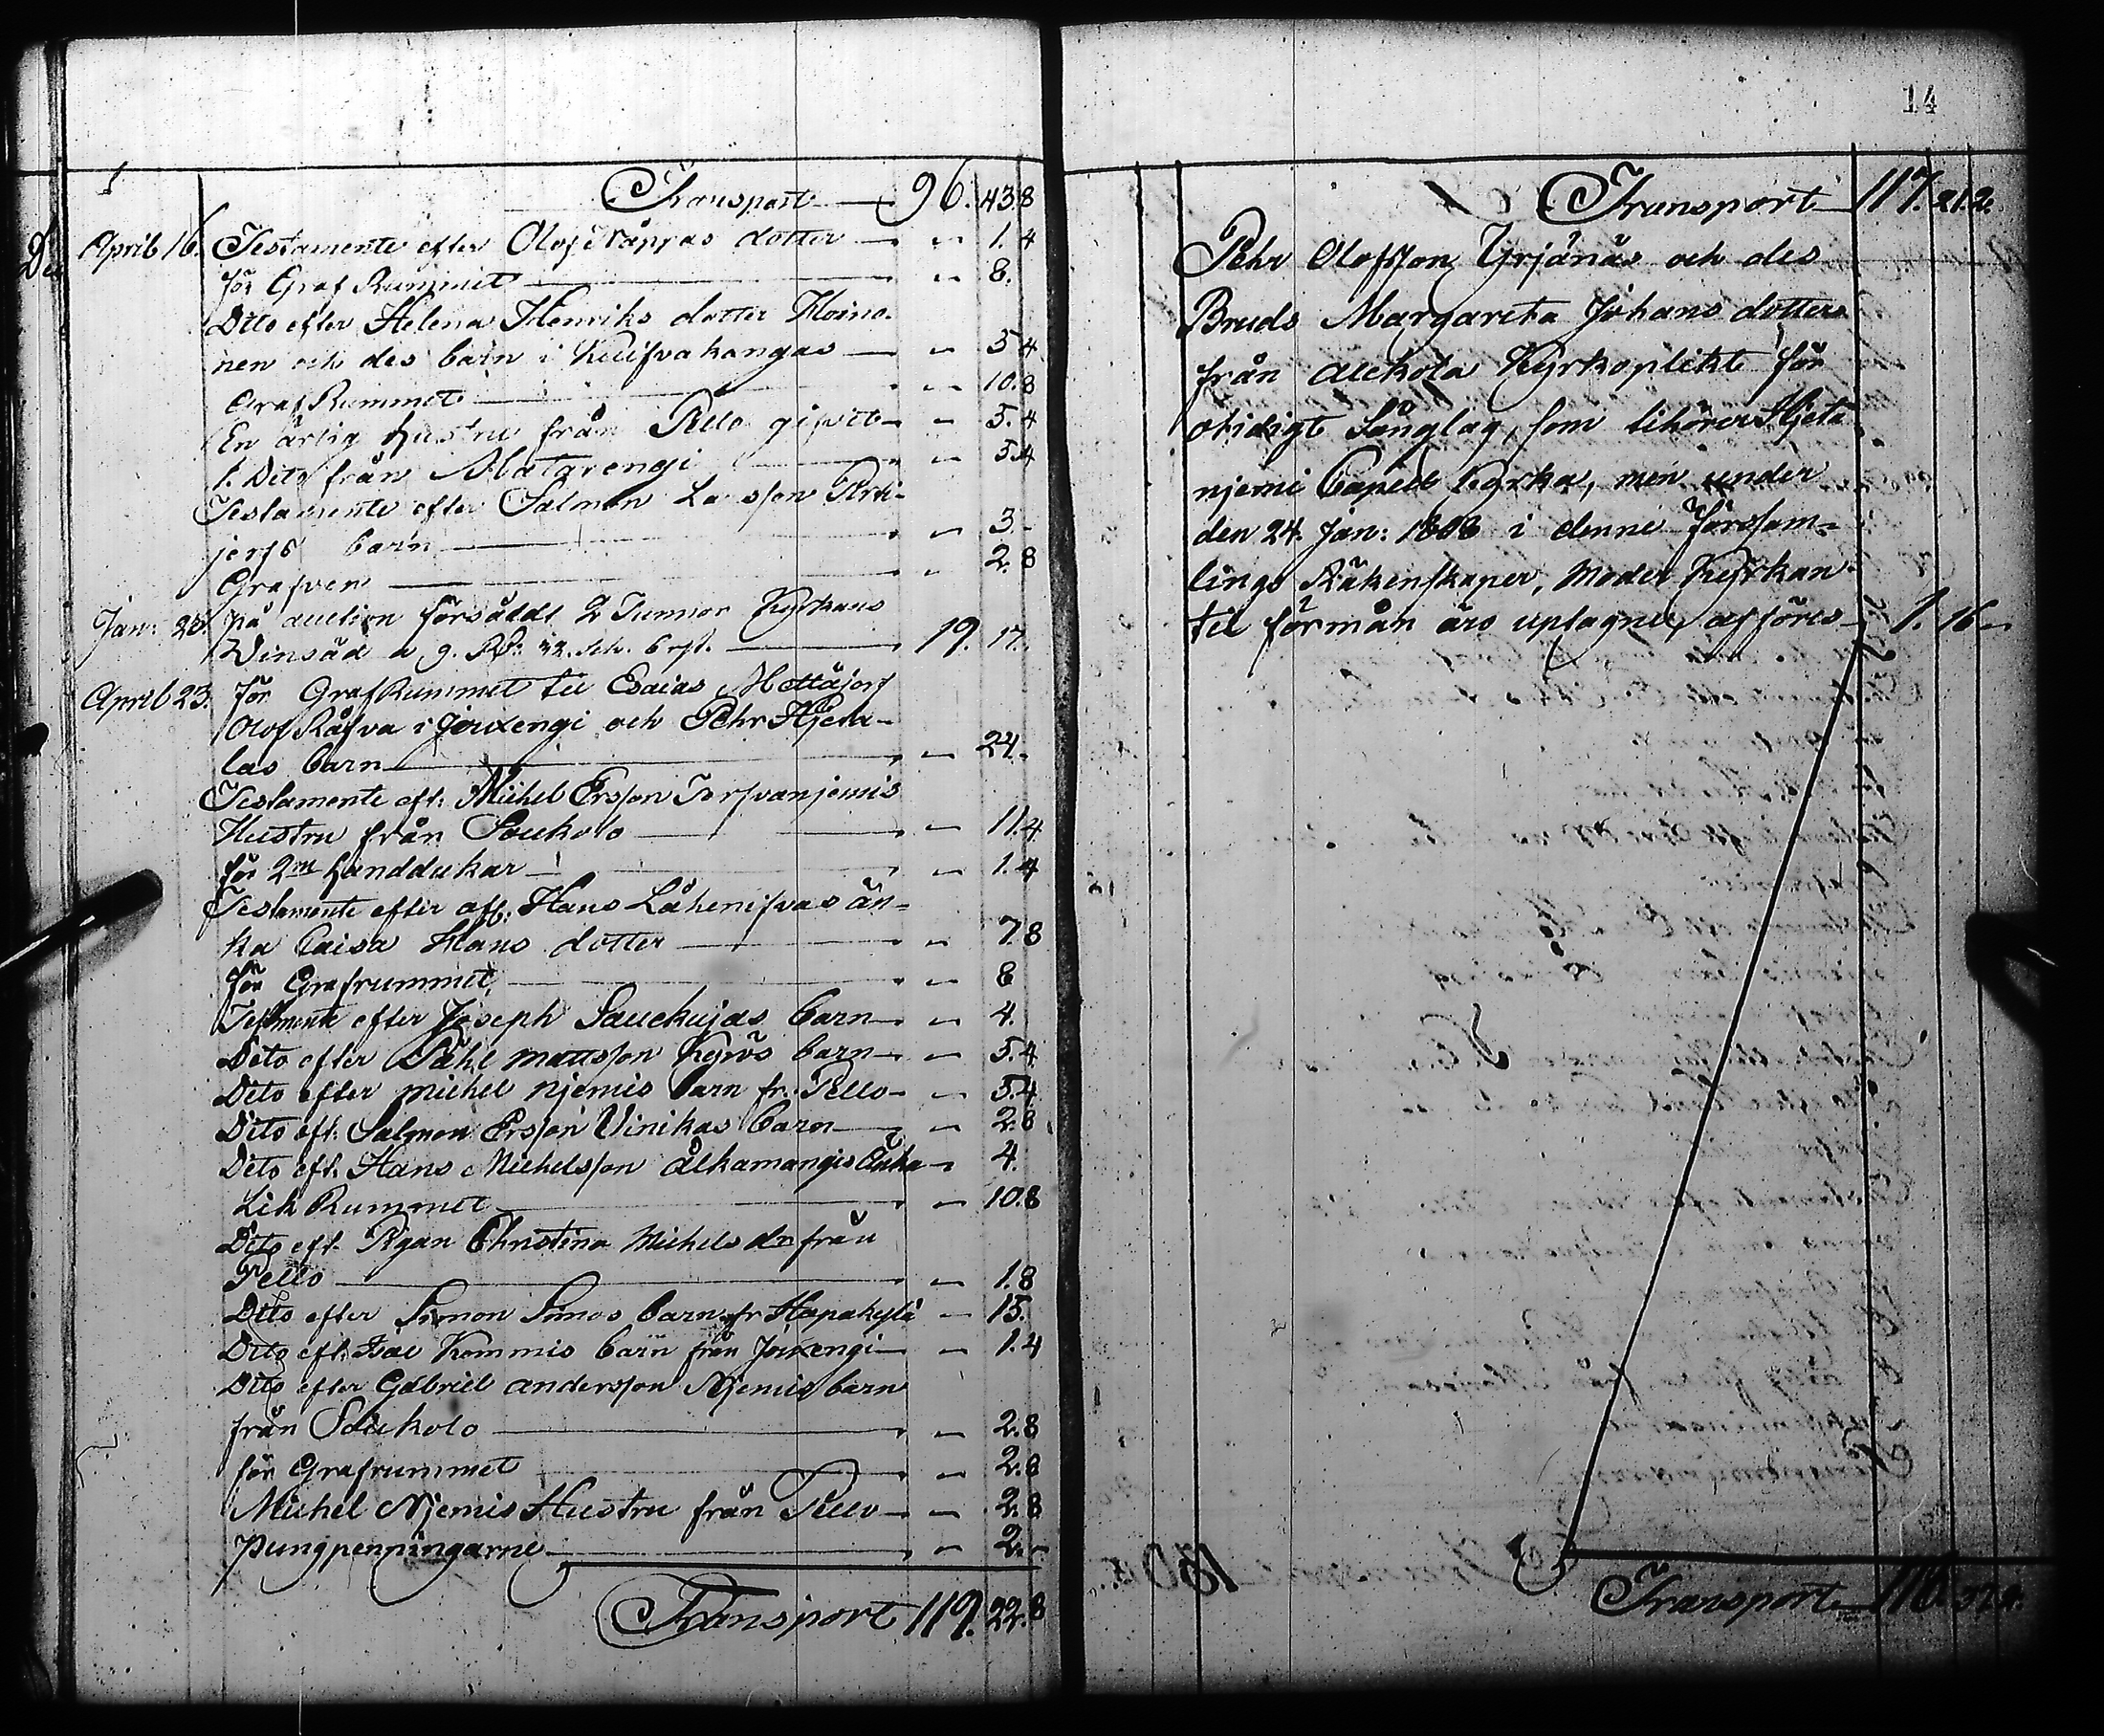 Transport 96. 43.8
April 16. Testamente efter Olof dotter 1.4
för Graf Rummet 8.
Dito efter Helena Henriks dotter Hoino-
nen och des barn i Kuifvakangas 5 4
Graf Rummet 10.8
En ärlig hustru från Pello gifvit 5.4
1. Dito från Matarengi 5.4
Testamente efter Salmon La sson Porti-
jerfs barn 3.
Grafven 2.8
Jan: 20. på auction försåldt 2 Tunnor Kyrkans
a 9. Rd: 32. sch. 6 rst. 19. 17.
April 23. för Graf Rummet til Esaias Mettäjerf
Olof Råfva i Jouxengi och Pehr Hjeta-
las barn 24.
Testamente eft: Michel Ersson Torfvanjemis
Hustru från Soukolo 11.4
för 2ne handdukar 1.4
Testamente efter afl: Hans Låhenifvas än-
ka Caisa Hans dotter 7.8
för Grafrummet 8
Testmente efter Joseph Sauckujas barn 4.
Dito efter Påhl mattsson Kyrös barn 5.4
Dito efter michel Njemis barn fr: Pello 5.4
Dito eft: Salmon Ersson Vinikas barn 2.8
Dito eft: Hans Michelsson Alkamangis Enka 4.
Lik Rummet 10.8
Dito eft. Pigan Christina Michels dr från
Pello 1.8
Dito efter Simon Simos barn fr Hapakylä 15.
Dito eft: Isac Kommis barn från Jouxengi 1.4
Dito efter Gabriel andersson Njemis barn
från Soukolo 2.8
för Grafrummet 2.8
Michel Njemis Hustru från Pello 2.8
Pungpenningarne 2.
Transport 119. 22.8
14
Transport 117. 21.2.
Pehr Olofsson Yrjänäs och des
Bruds Margareta Johans dotter
från Alckola Kyrkoplikt för
otidigt Sänglag, som tihörer Hjeta
njemi Capell kyrka, men under
den 24. Jan: 1808 i denne Försam-
lings Räkenskaper, Moder Kyrkan
til förmån äro uptagne, afföres 1. 16
Transport 116.